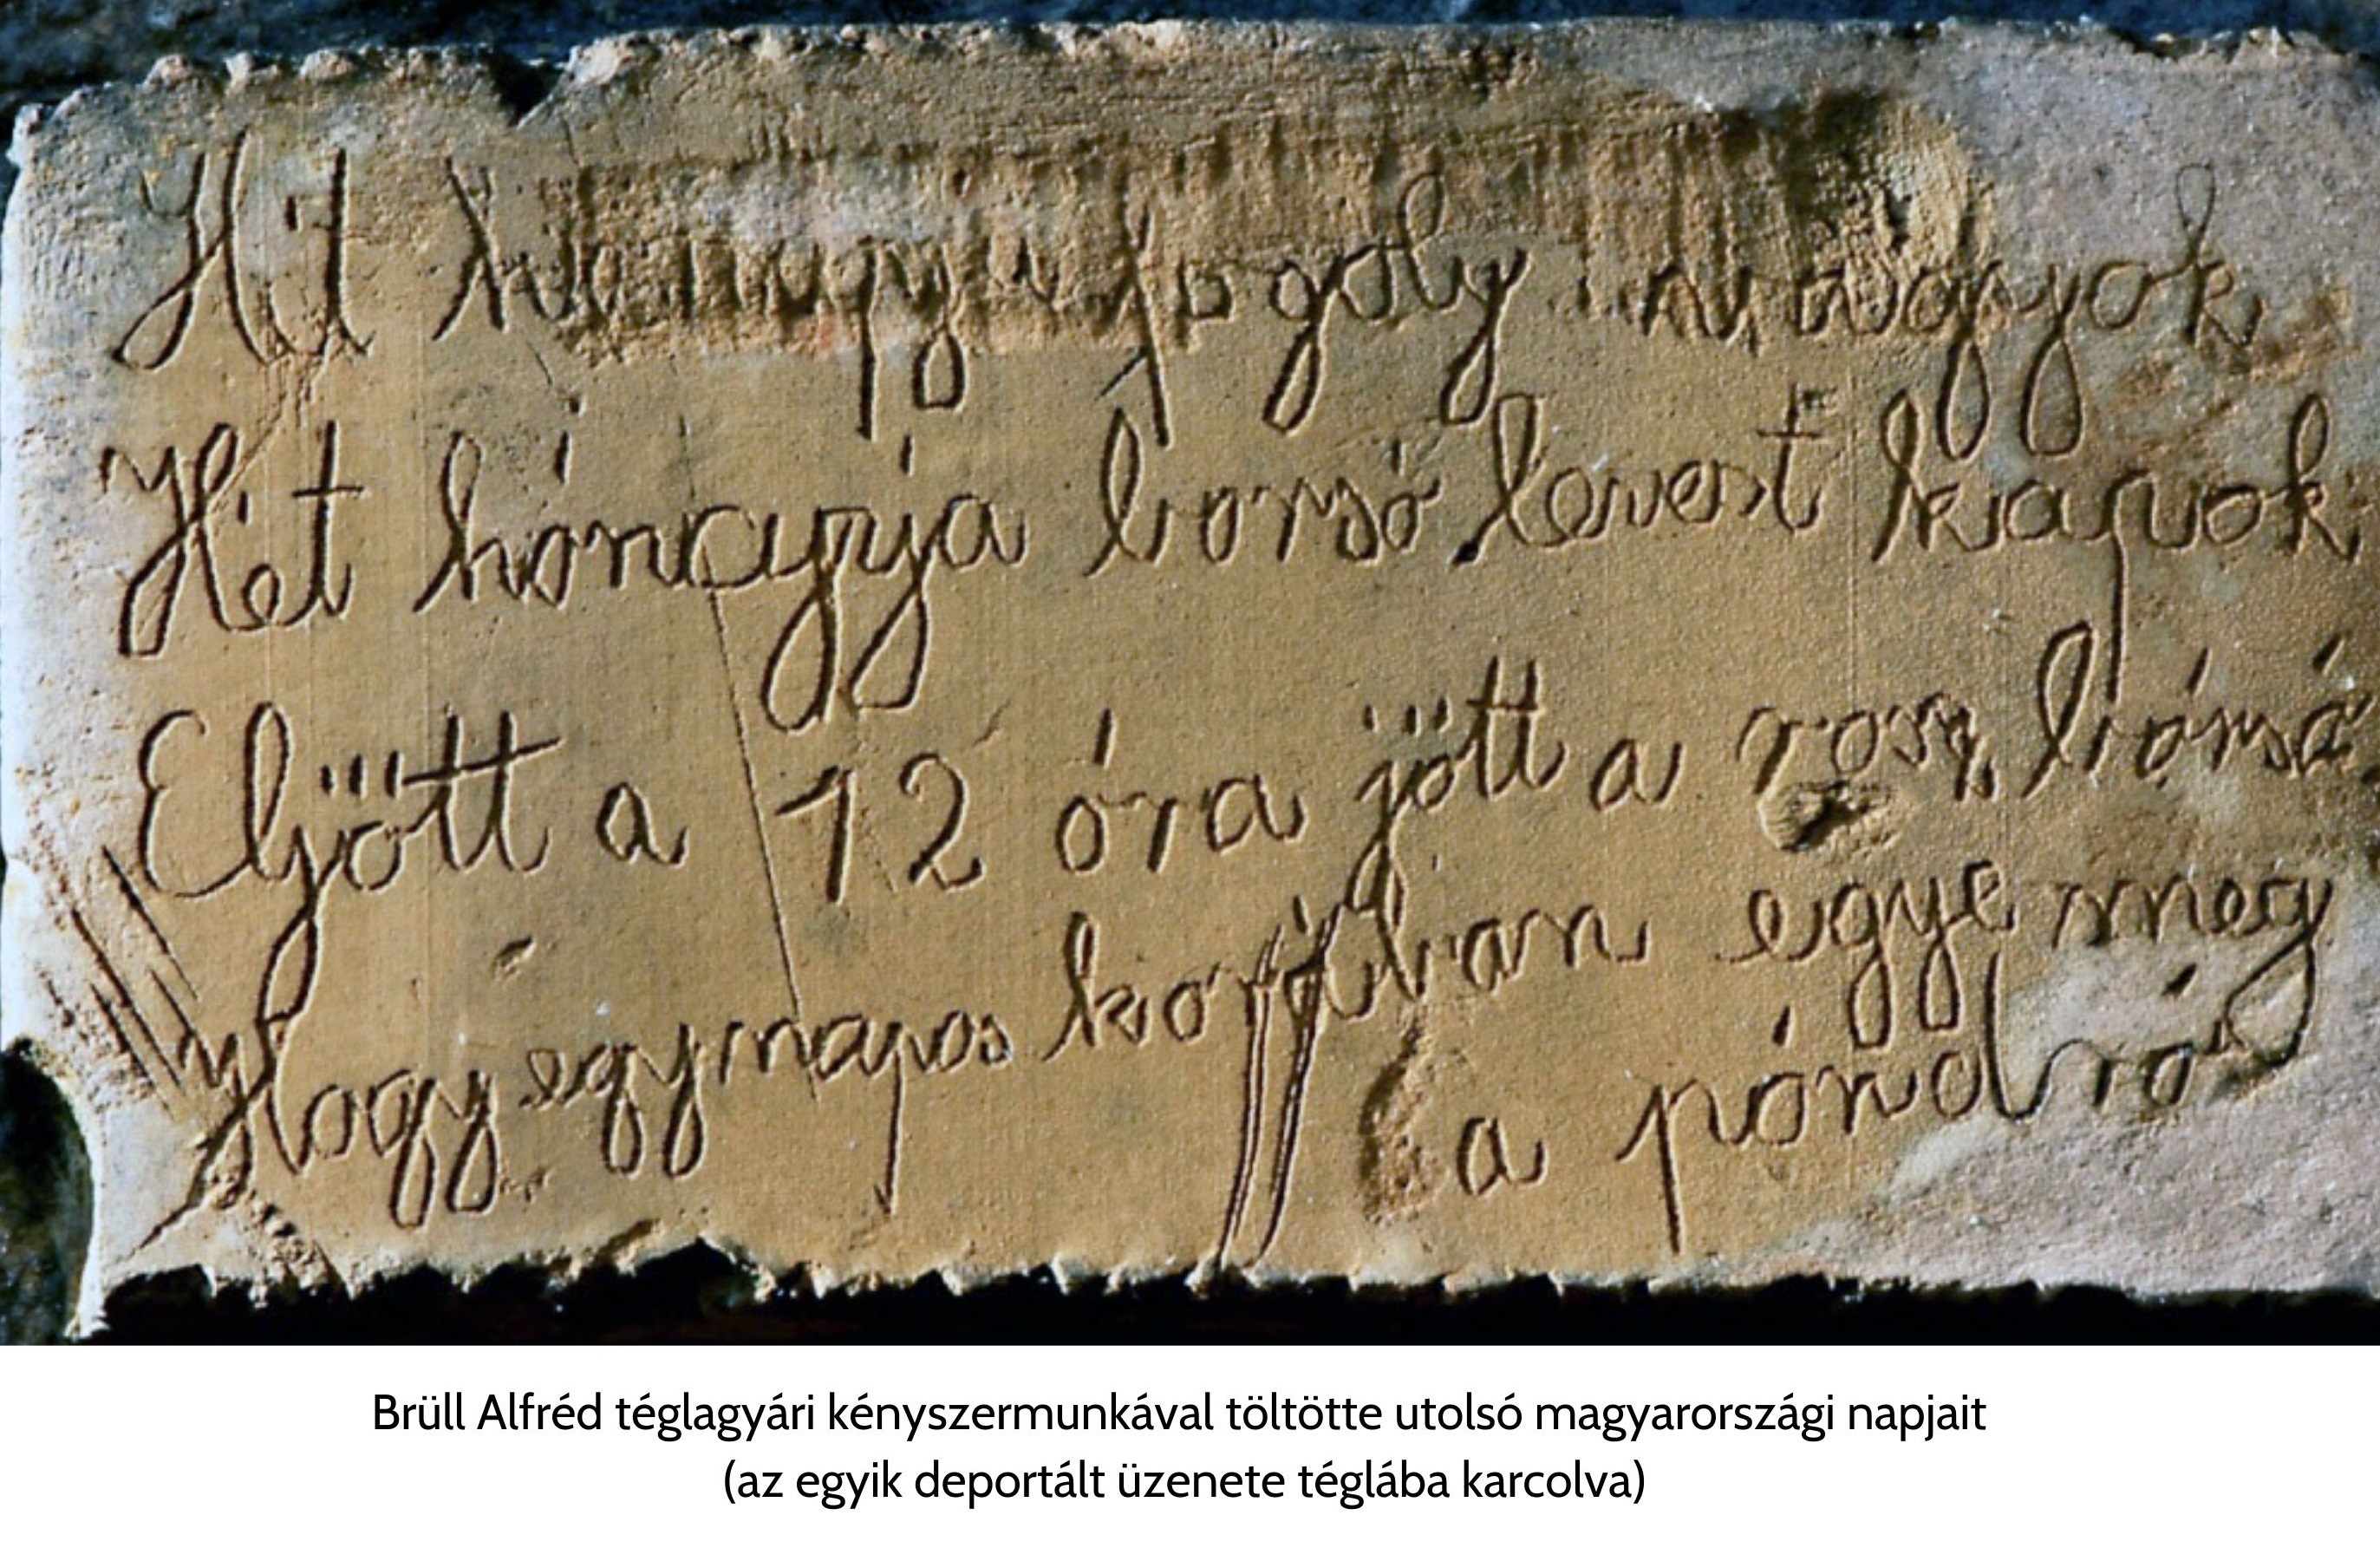 Hét hónapja fogoly vagyok
Hét hónapja borsó levest kapok
Eljött a 12 óra jött a rosz bórsó
Hogy egynapos korában egye meg
a póndró
Brüll Alfréd téglagyári kényszermunkával töltötte utolsó magyarországi napjait
(az egyik deportált üzenete téglába karcolva)